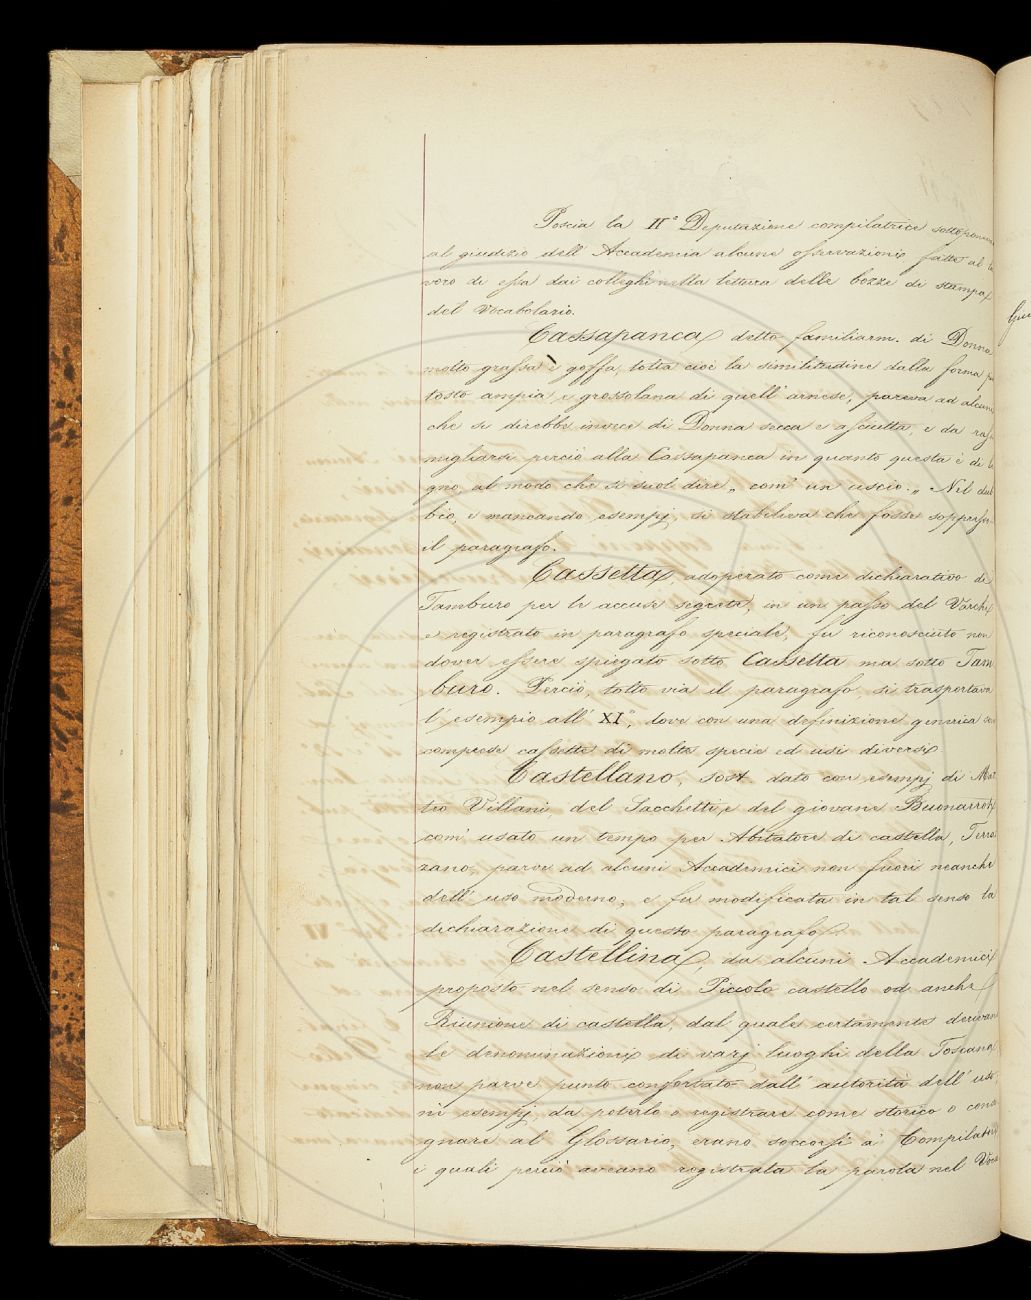 Poscia la IIª Deputazione compilatrice sottoponeva
al giudizio dell' Accademia alcune osservazioni fatte al la
voro di essa dai colleghi nella lettura delle bozze di stampa
del Vocabolario.
Cassapanca detto familiarm. di Donna
molto grassa e goffa, tolta cioè la similitudine dalla forma piut
tosto ampia e grossolana di quell' arnese, pareva ad alcuni
che si direbbe invece di Donna secca e asciutta, e da rasso
migliarsi perciò alla Cassapanca in quanto questa è di le
gno, al modo che si suol dire „ com' un uscio. „ Nel dub
bio, e mancando esempj, si stabiliva che fosse soppresso
il paragrafo.
Cassetta, adoperato come dichiarativo di
Tamburo per le accuse segrete, in un passo del Varchi
e registrato in paragrafo speciale, fu riconosciuto non
dover essere spiegato sotto Cassetta ma sotto Tam
buro. Perciò, tolto via il paragrafo, si trasportava
l' esempio all' XI°, dove con una definizione generica son
comprese cassette di molte specie ed usi diversi
Castellano, sost. dato con esempj di Mat
teo Villani, del Sacchetti, e del giovane Buonarroti
com' usato un tempo per Abitatore di castella, Terraz
zano, parve ad alcuni Accademici non fuori neanche
dell' uso moderno, e fu modificata in tal senso la
dichiarazione di questo paragrafo
Castellina, da alcuni Accademici
proposto nel senso di Piccolo castello od anche
Riunione di castella, dal quale certamente derivan
le denominazioni di varj luoghi della Toscana
non parve punto confortato dall' autorità dell' uso,
nè esempj, da poterlo o registrare come storico o conse
gnare al Glossario, erano soccorsi a' Compilatori
i quali perciò aveano registrata la parola nel Voca